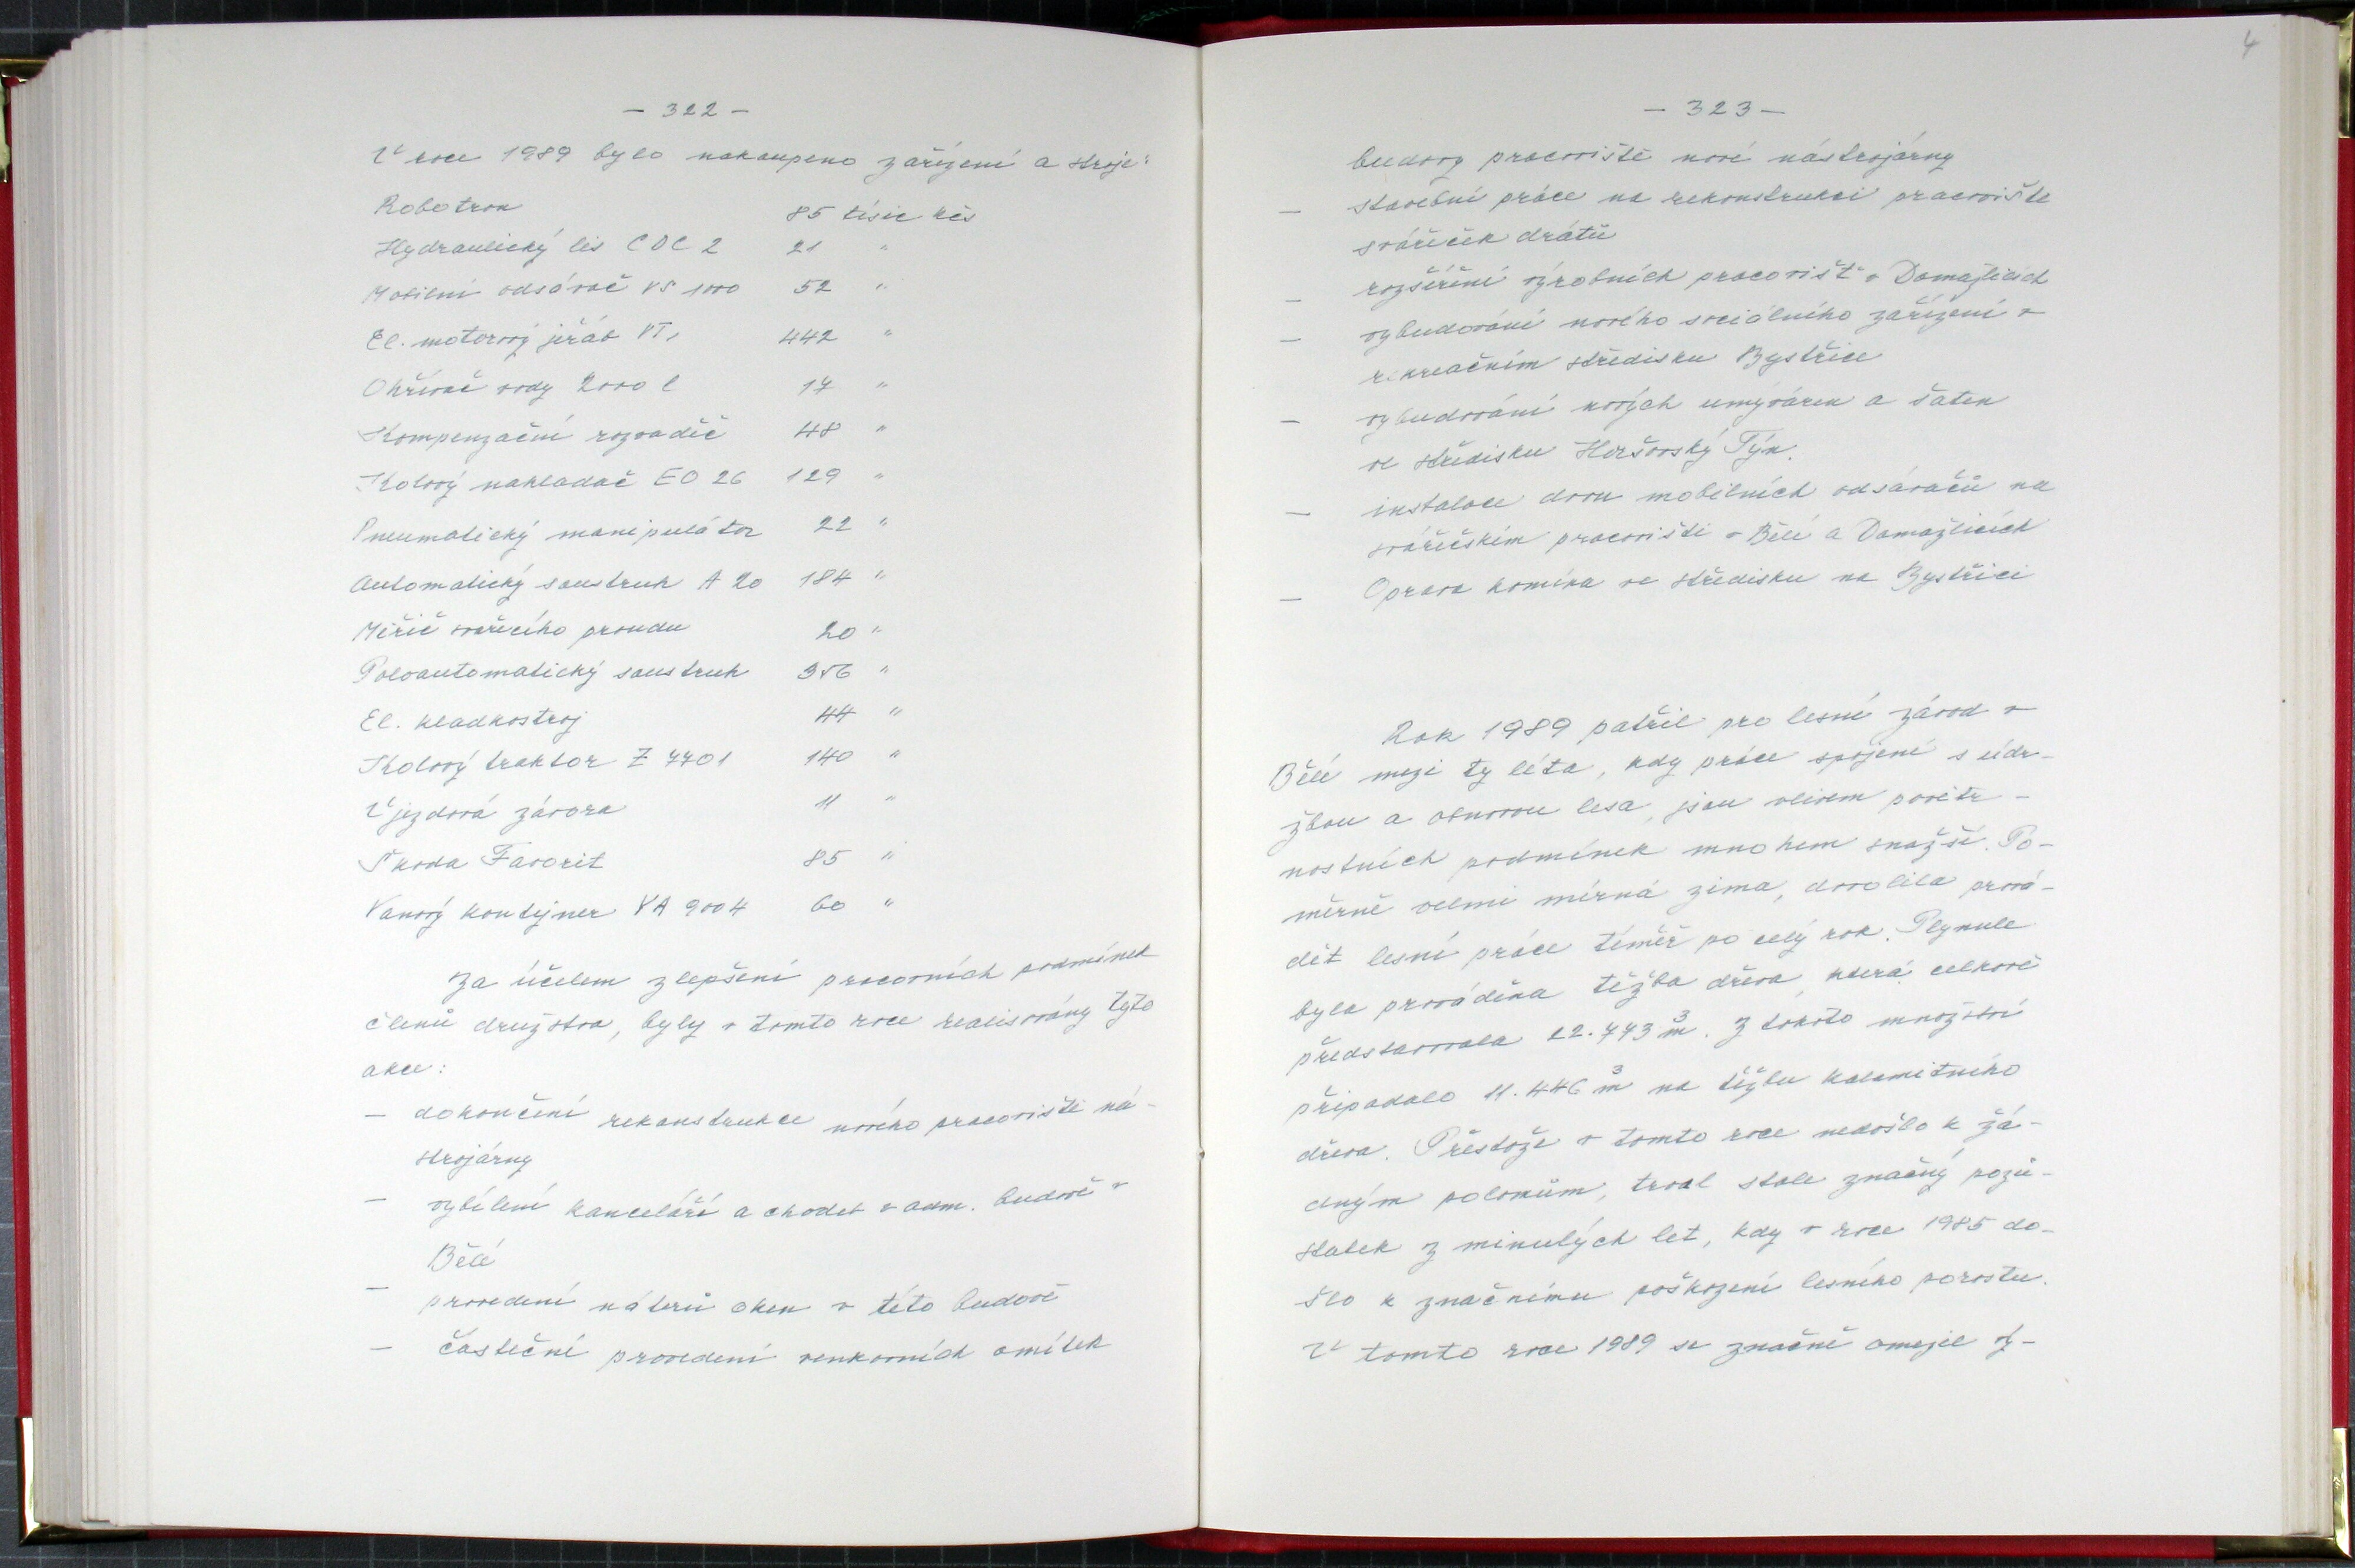 - 322 -
V roce 1989 bylo nakoupeno zařízení a stroje:
Robotron 85 tisíc kčs
Hydraulický lis CDC 2 21 "
Mobilní odsávač VS 1000 52 "
El. motorový jeřáb VT, 442 "
Ohřívač vody 2000 l 17 "
Kompenzační rozvaděč 48 "
Kolový nakladač EO 26 129 "
Pneumatický manipulátor 22 "
Automatický soustruh A 20 184 "
Měřič svařecího proudu 20 "
Poloautomatický soustruh 356 "
El. kladkostroj 44 "
Kolový traktor Z 7701 140 "
Vjezdová závora 11 "
Škoda Favorit 85 "
Vanový kontejner VA 9004 60 "
Za účelem zlepšení pracovních podmínek
členů družstva, byly v tomto roce realisovány tyto
akce:
- dokončení rekonstrukce nového pracoviště ná-
strojárny
- vybílení kanceláří a chodeb v adm. budově v
Bělé
- provedení náterů oken v této budově
- částečné provedení venkovních omítek
4
- 323 -
budovy pracoviště nové nástrojárny
- stavební práce na rekonstrukci pracoviště
svářeček drátů
- rozšíření výrobních pracovišť v Domažlicích
- vybudování nového sociálního zařízení v
rekreačním středisku Bystřice
- vybudování nových umýváren a šaten
ve středisku Horšovský Týn.
- instalace dvou mobilních odsávačů na
svářečském pracovišti v Bělé a Domažlicích
- Oprava komína ve středisku na Bystřici
Rok 1989 patřil pro lesní závod v
Bělé mezi ty léta, kdy práce spojené s údr-
žbou a obnovou lesa, jsou vlivem povětr-
nostních podmínek mnohem snažší. Po-
měrně velmi mírná zima, dovolila prová-
dět lesní práce téměř po celý rok. Plynule
byla prováděna těžba dřeva, která celkově
představovala 22.773 m³. Z tohoto množství
připadalo 11.446 m³ na těžbu kalamitního
dřeva. Přestože v tomto roce nedošlo k žá-
dným polomům, trval stále značný pozů-
statek z minulých let, kdy v roce 1985 do-
šlo k značnému poškození lesního porostu.
V tomto roce 1989 se značně omezil vý-